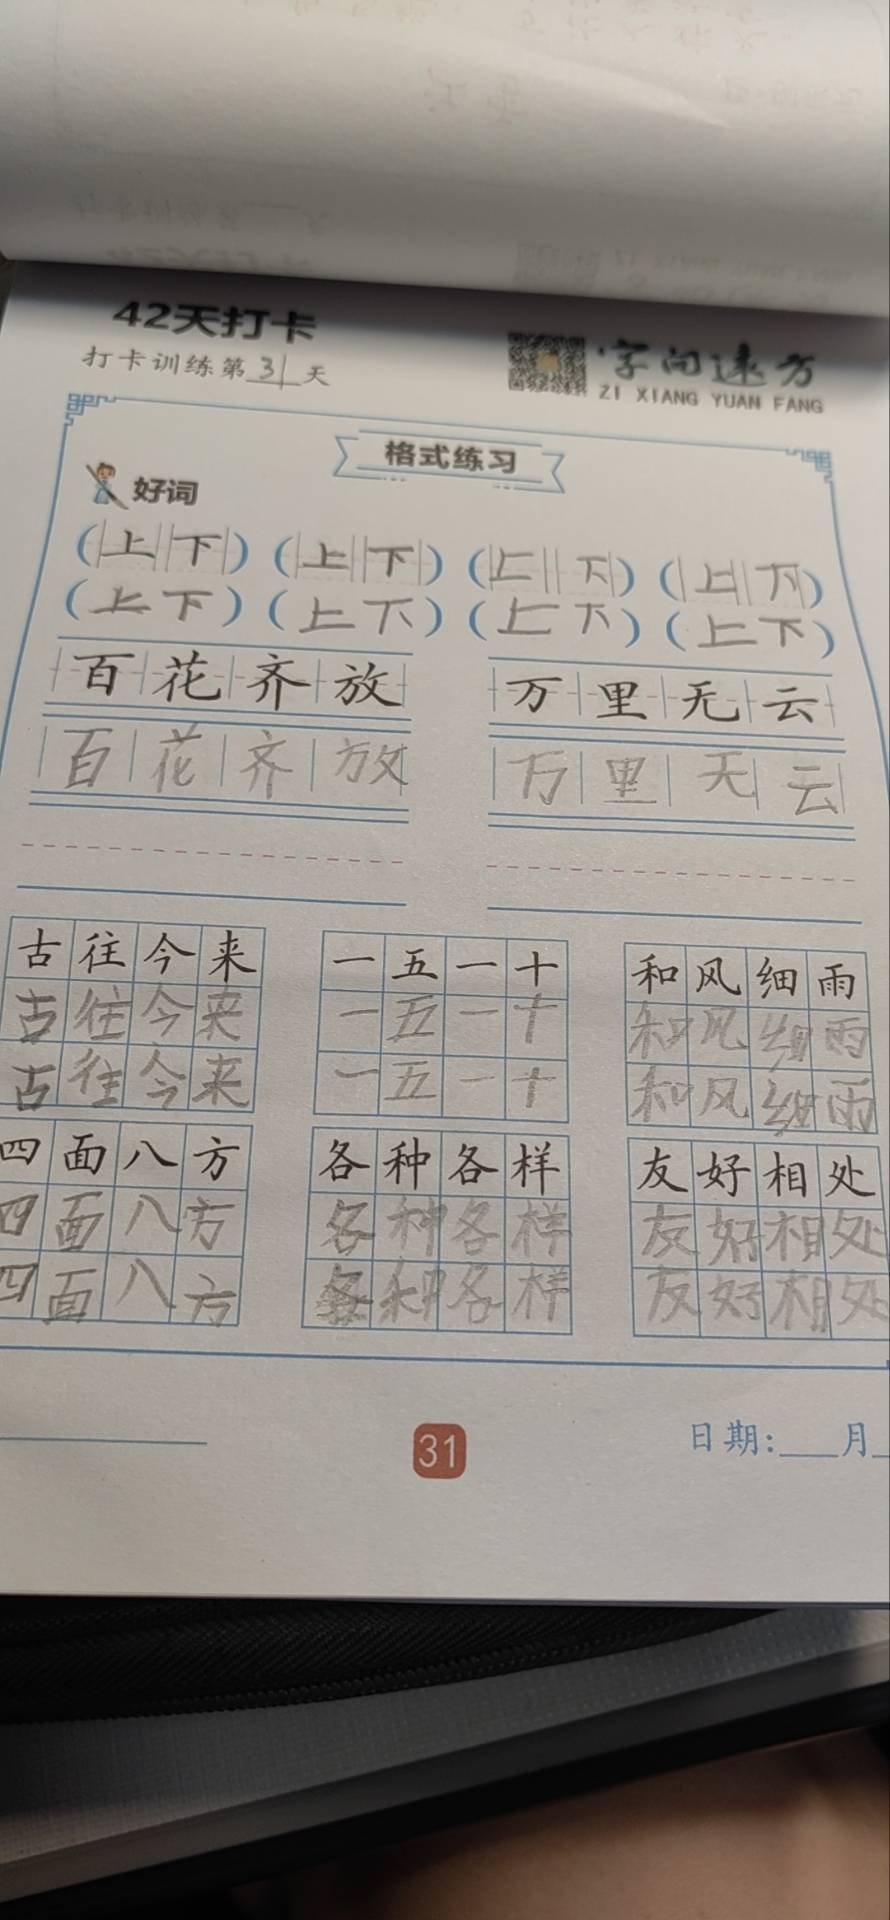 42天打卡
打卡训练第31天
字向远方
ZI XIANG YUAN FANG
格式练习
好词
(上下) (上下) (上下) (上下)
(上下) (上下) (上下) (上下)
百花齐放 万里无云
百花齐放 万里无云
古往今来 一五一十 和风细雨
古往今来 一五一十 和风细雨
古往今来 一五一十 和风细雨
四面八方 各种各样 友好相处
四面八方 各种各样 友好相处
四面八方 各种各样 友好相处
31 日期:___月